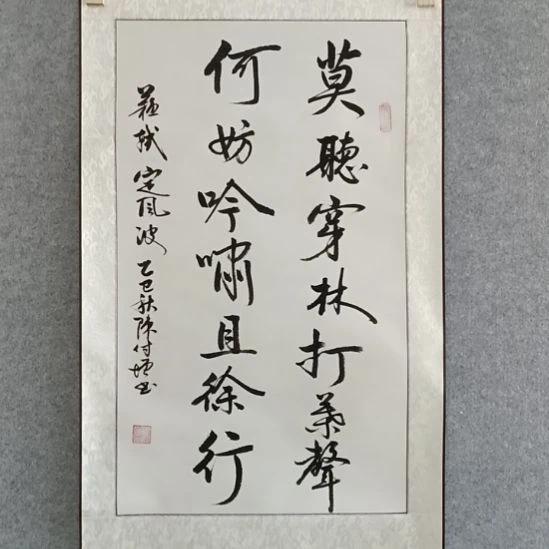 莫聽穿林打葉聲
何妨吟嘯且徐行
蘇軾 定風波 乙巳秋陳付増书